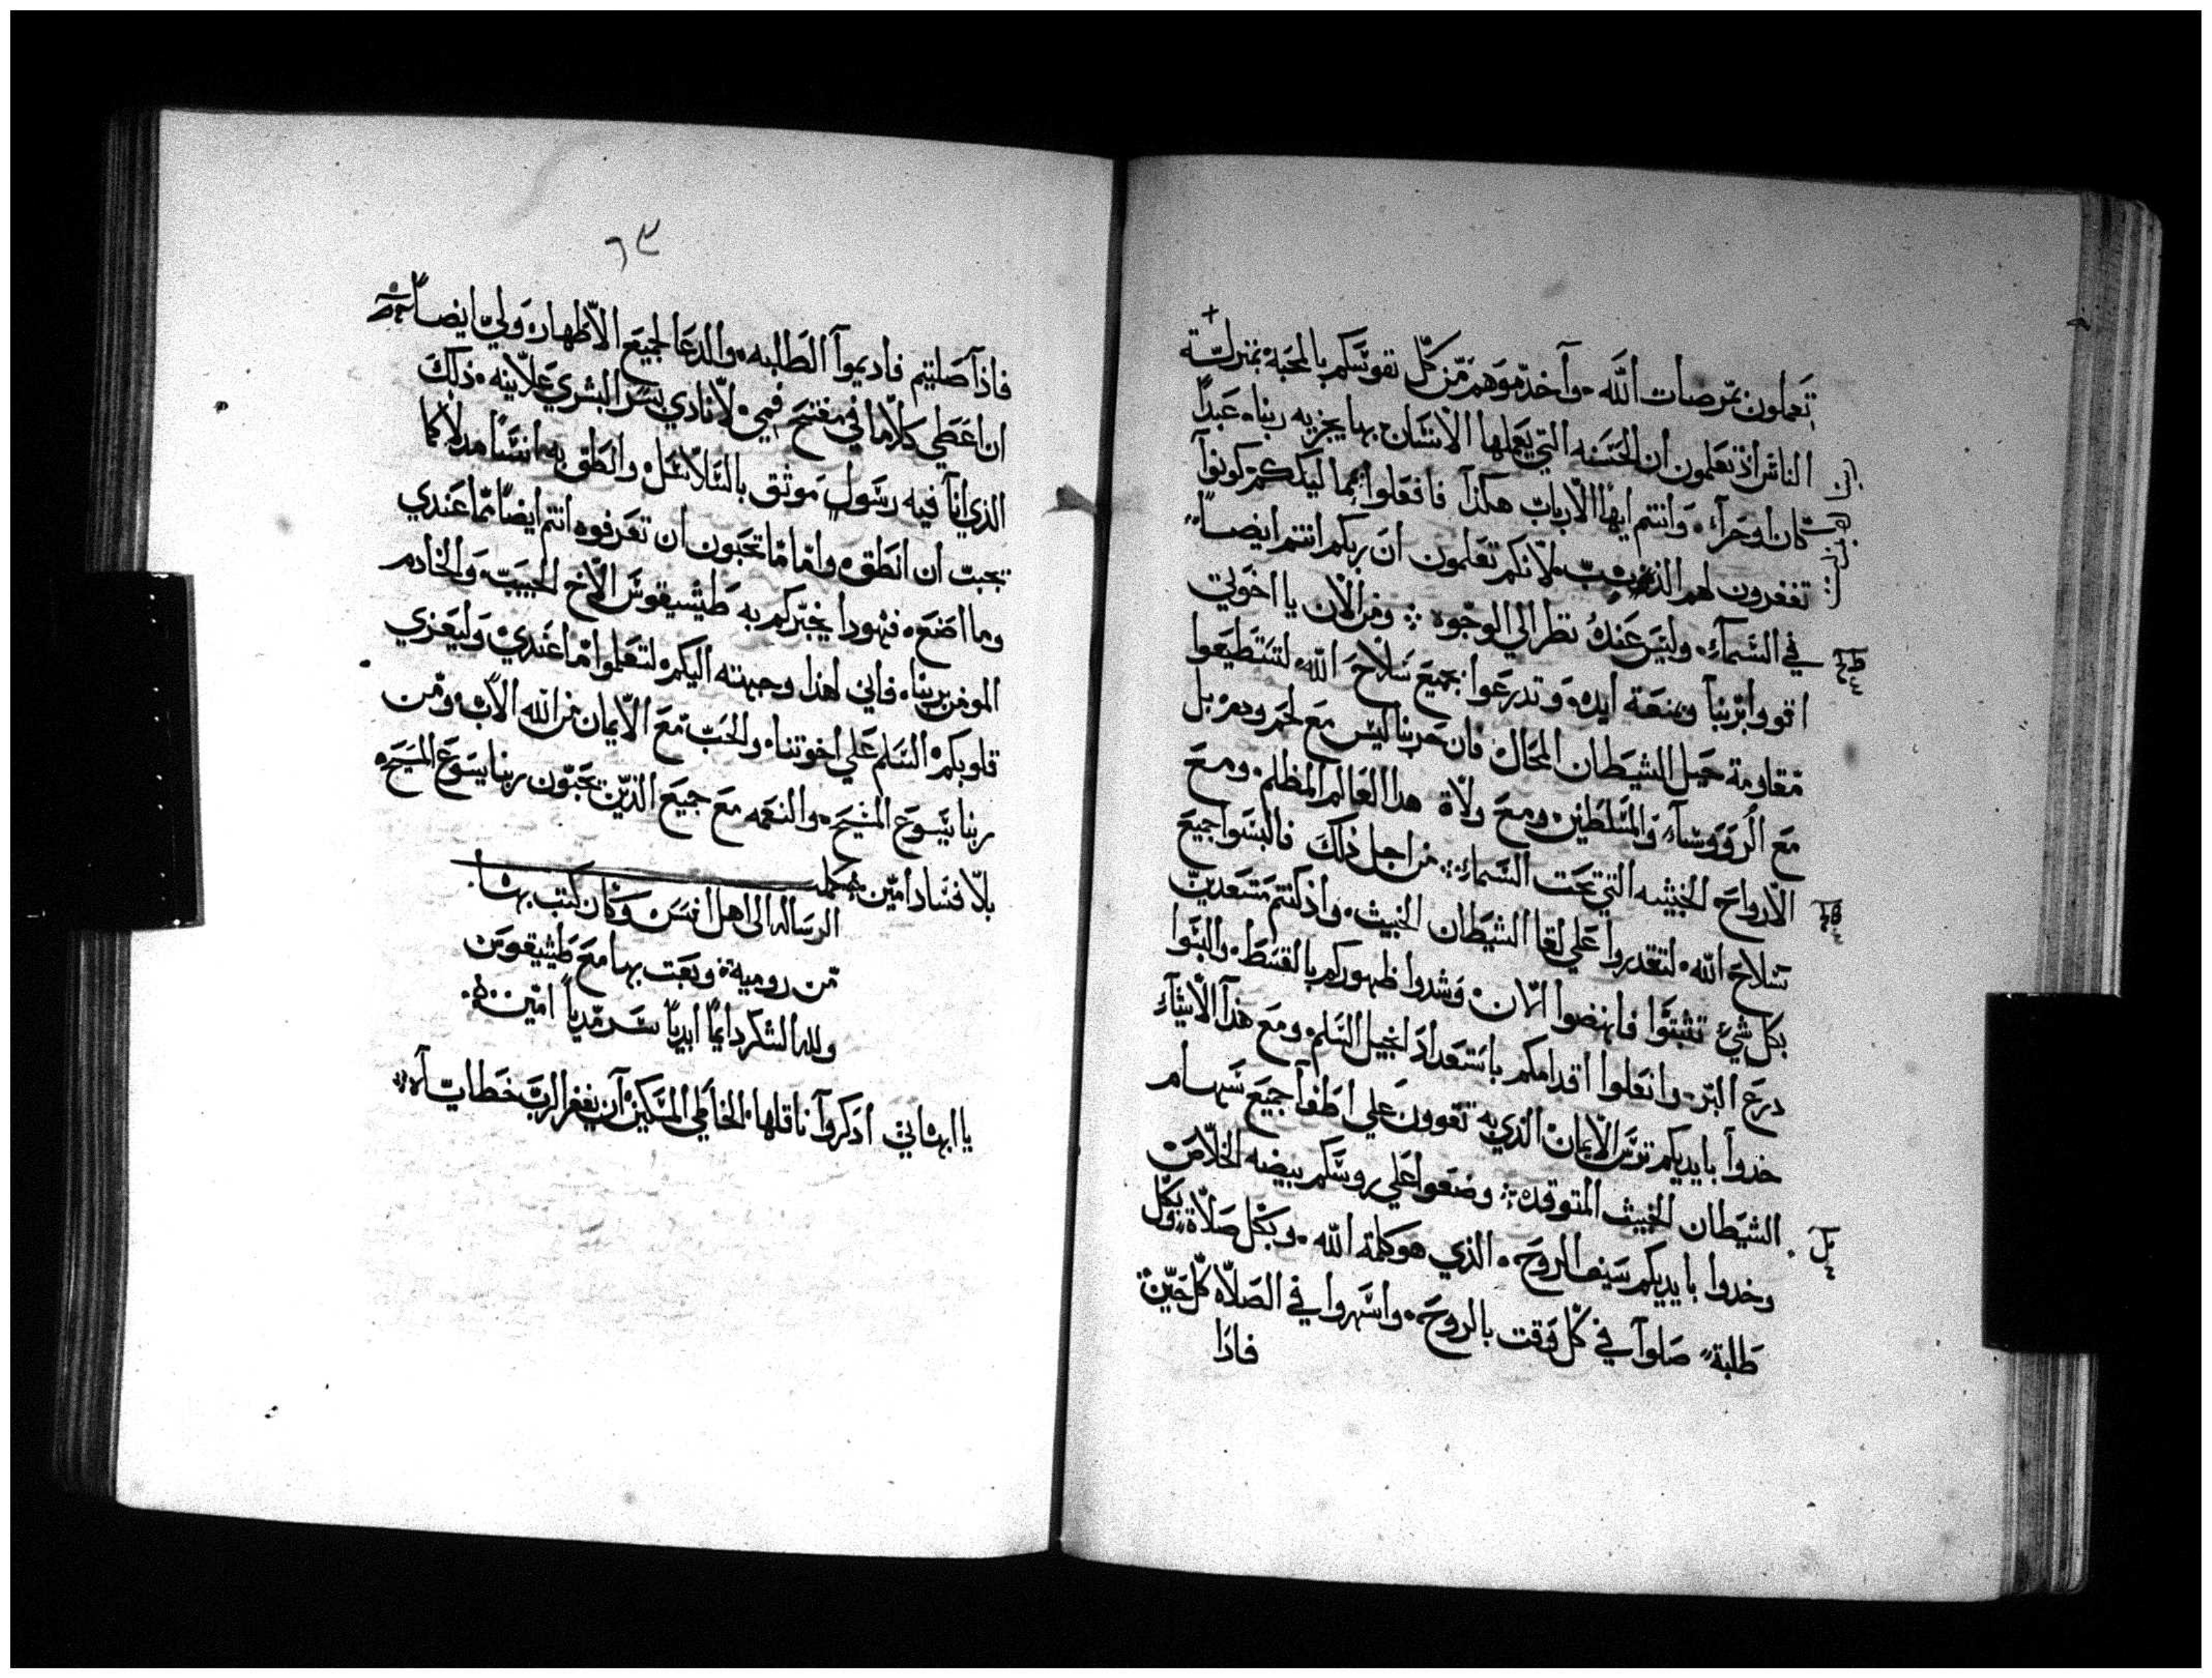 تعملون بمرضات الله، وآخدموهم من كل نفوسكم بالمحبه بمنزلة
الناس اذ تعلمون ان الحسنه التي يعملها الانسان بها يجزيه ربنا، عبدًا
كان او حرآ، وانتم ايها الارباب هكذا فافعلوا بما ليدكم كونوآ
تغفرون لهم الذنوب، لانكم تعلمون ان ربكم انتم ايضاً
في السمآء، وليس عنده نظر الي الوجوه ∴ ومن الان يا اخوتي
اقووا بربنا وبمنعة ايده، وتدرعوا بجميع سلاح الله، لتستطيعوا
مقاومة حيل الشيطان المحال، فان حربنا ليس مع لحم ودم، بل
مع الرووسآء والمسلطين، ومع ولاة هدا العالم المظلم، ومع
الارواح الخبيثه التي تحت السماء ∴ من اجل ذلك فالبسوا جميع
سلاح الله، لتقدروا علي لقا الشيطان الخبيث، واذ كنتم مستعدين
بكل شيء تثبتوا فانهضوا الان، وشدوا ظهوركم بالقسط، والبسوا
درع البر، وانعلوا اقدامكم باستعداد انجيل السلم، ومع هذآ الاشيآء
خدوآ بايديكم ترس الايمان، الذي به تقوون علي اطفآ جميع سهام
الشيطان الخبيث المتوقده ∴ وضعوا علي روسكم بيضه الخلاص
وخدوا بايديكم سيف الروح، الذي هو كلمة الله، وبكل صلاة وبكل
طلبة، صلوآ في كل وقت بالروح، واسهروا في الصلاه كل حين
فاذا
٦٣
فاذآ صليتم فاديموآ الطلبه، والدعا لجميع الاطهار، ولي ايضاً
ان اعطي كلاما في مفتح فمي، لانادي بسر البشري علانيه، ذلك
الذي انآ فيه رسول موثق بالسلاسل، وانطق به انسا مدلا كما
يجب ان انطق، واما ما تحبون ان تعرفوه انتم ايضا مما عندي
وما اصنع، فهودا يخبركم به طيشيقوس الاخ الحبيب، والخادم
المومن بربنا، فاني لهذا وجهته اليكم، لتعلموا ما عندي، وليعزي
قلوبكم، السلم علي اخوتنا، والحب مع الايمان من الله الاب، ومن
ربنا يسوع المسيح، والنعمه مع جميع الذين يحبون ربنا يسوع المسيح،
بلا فساد امين
الرساله الى اهل افسس وكان كتب بها
من روميه، وبعت بها مع طيشيقوس
ولله الشكر دايمًا ابدياً سرمدياً امين
يا ابهاتي ادكروآ ناقلها الخاطي المسكين، آن يغفر الرب خطاياه